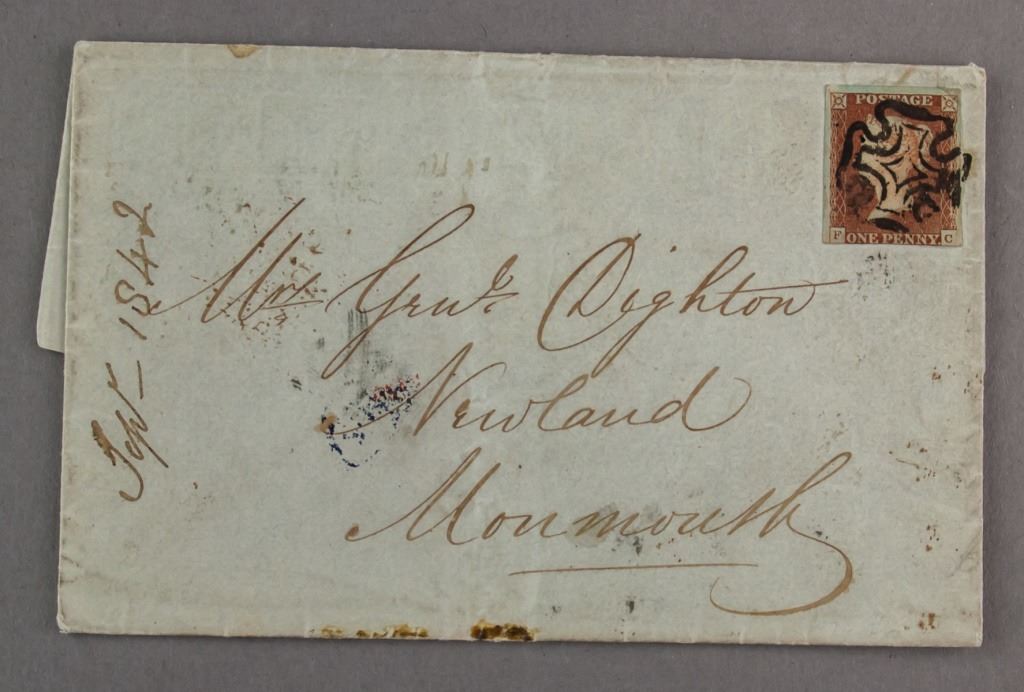 POSTAGE
ONE PENNY.
F C
Sept 1842
Mrs Genl. Dighton
Newland
Monmouth